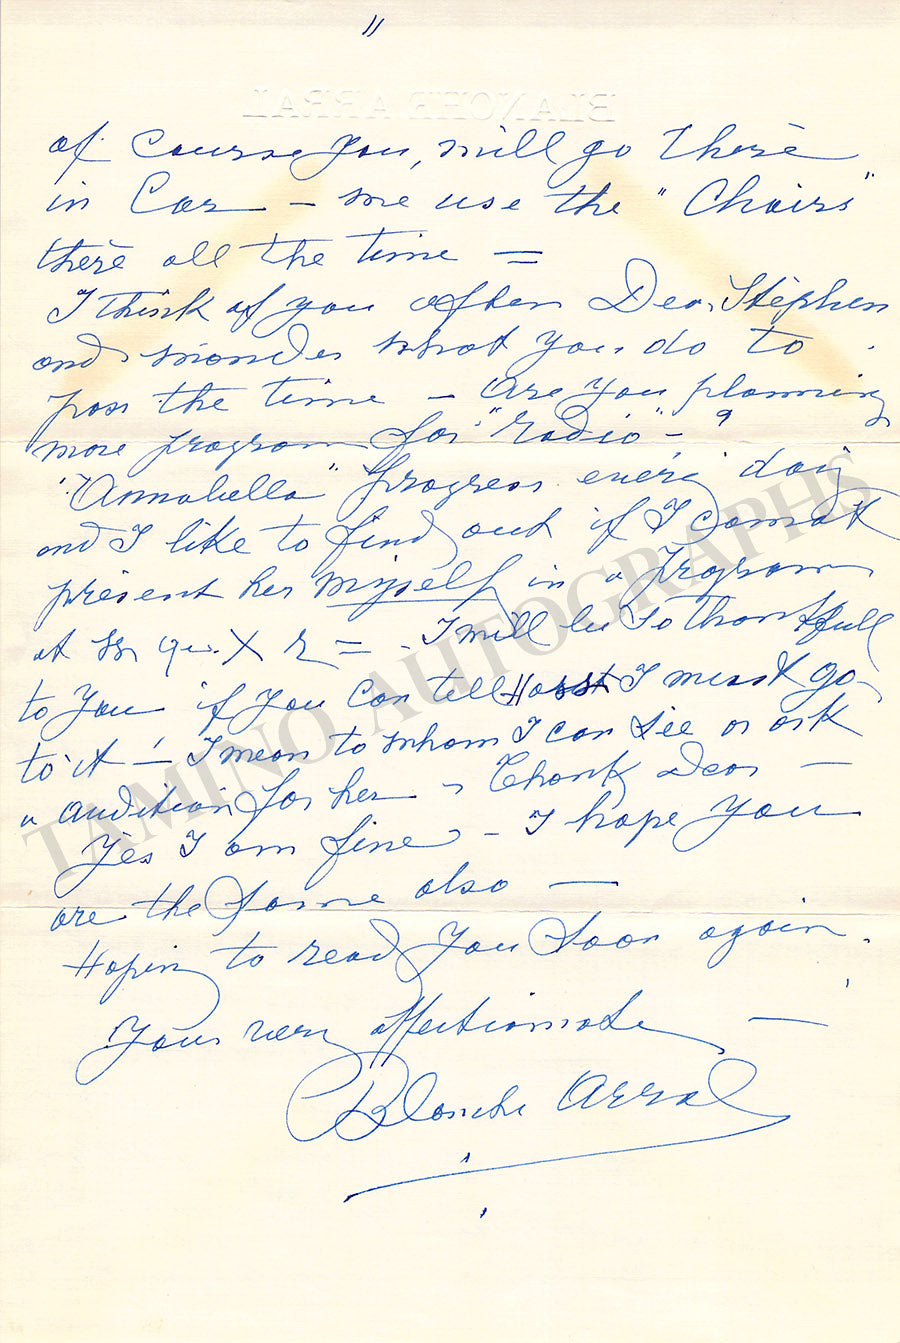 "
BLANCHE ARRAL
of course you, will go there
in Car – we use the "Chairs"
there all the time =
I think of you often Dear Stephen
and wonder what you do to
pass the time – are you planning
more program for "radio" – ?
"Annabella" progress every day
and I like to find out if I cannot
present her myself in a program
at W. q. X r = I will be so thankfull
to you if you can tell I must go
to it – I mean to whom I can see or ask
a audition for her – Thank Dear –
Yes I am fine – I hope you
are the same also –
Hoping to read you soon again.
Your very affectionate –
Blanche Arral
TAMINO AUTOGRAPHS